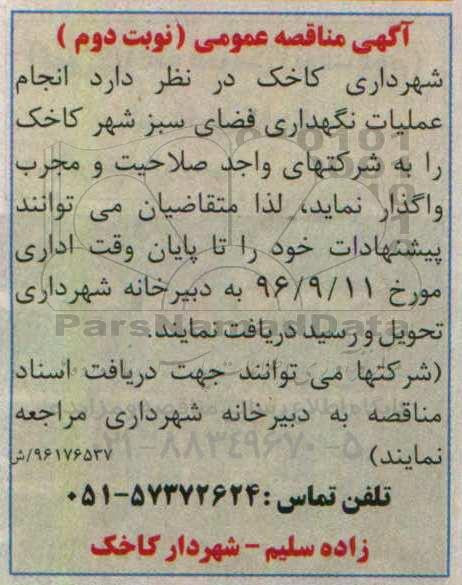 آگهی مناقصه عمومی (نوبت دوم)
شهرداری کاخک در نظر دارد انجام
عملیات نگهداری فضای سبز شهر کاخک
را به شرکتهای واجد صلاحیت و مجرب
واگذار نماید، لذا متقاضیان می توانند
پیشنهادات خود را تا پایان وقت اداری
مورخ ۹۶/۹/۱۱ به دبیرخانه شهرداری
ParsNamadData
تحویل و رسید دریافت نمایند.
(شرکتها می توانند جهت دریافت اسناد
مناقصه به دبیرخانه شهرداری مراجعه
۰۲۱-۸۸۳۴۹۶۷۰-۵
نمایند) ۹۶۱۷۶۵۳۷/ش
تلفن تماس: ۵۷۳۷۲۶۲۴-۰۵۱
زاده سلیم - شهردار کاخک